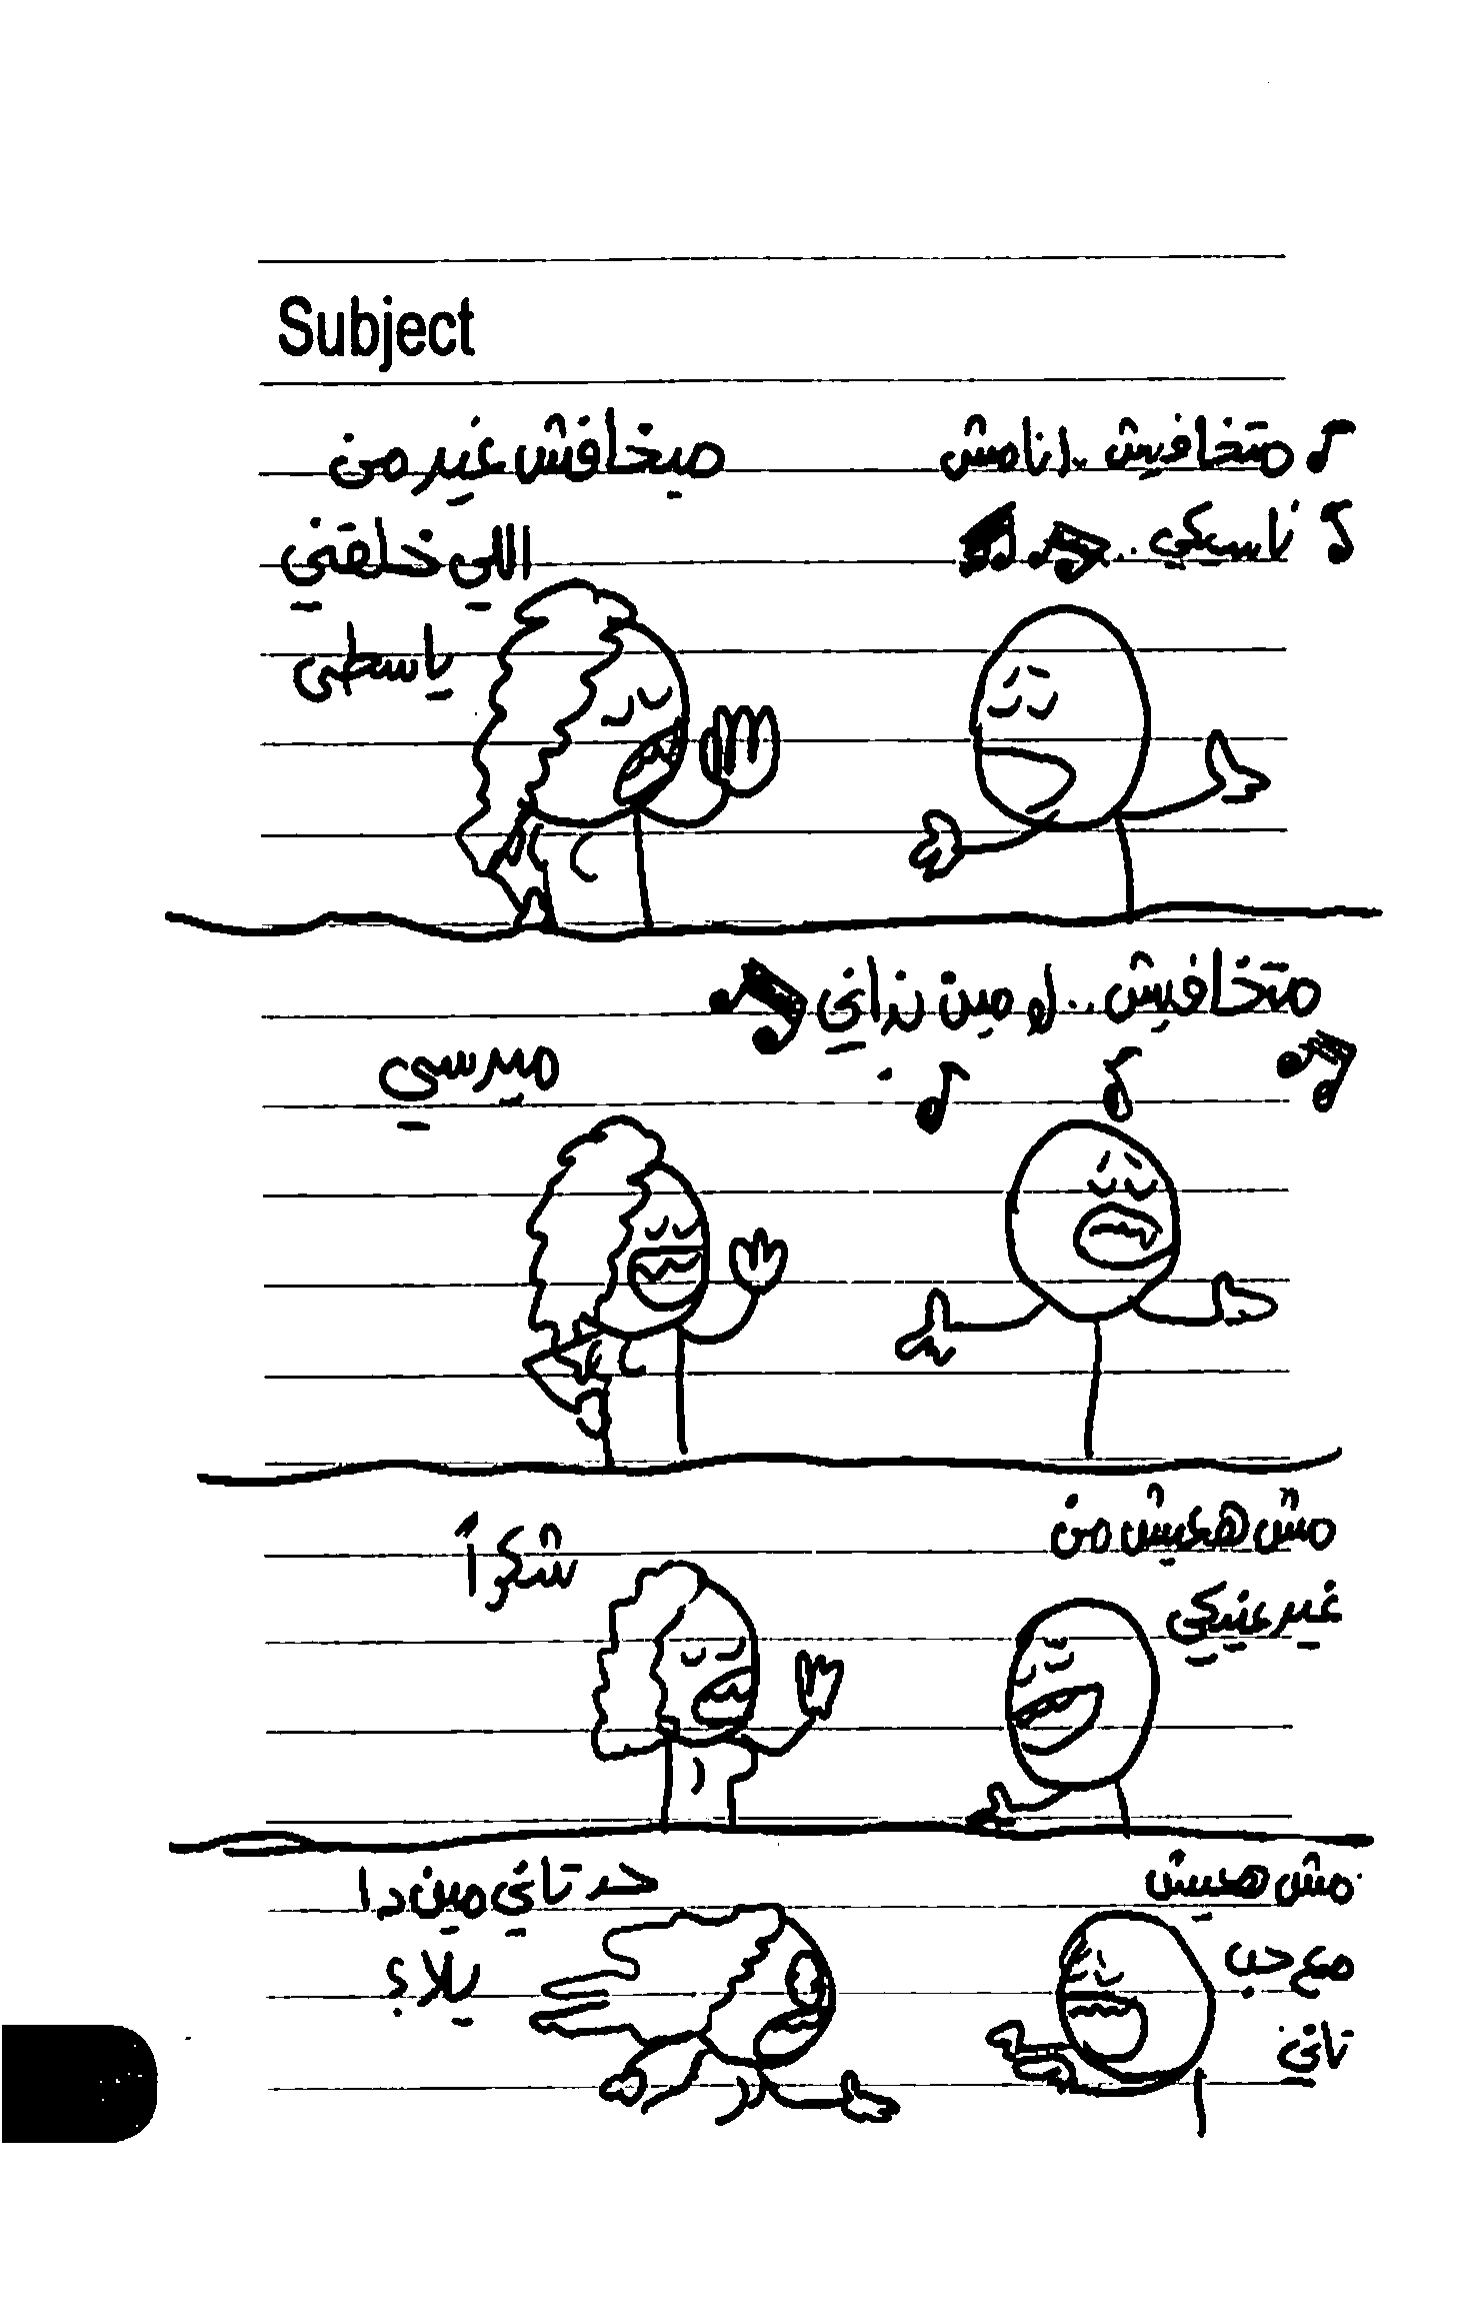 Subject
متخافيش .. انا مش
ناسيكي ..
مبخافش غير من
اللي خلقني
ياسطى
متخافيش .. لو مين نداني
ميرسي
مش هعيش من
غير عنيكي
شكراً
مش هعيش
مع حب
تاني
حد تاني مين دا
يلا ؟